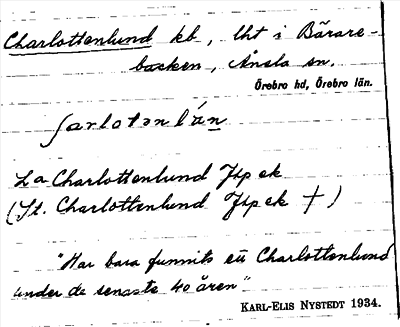 Charlottenlund kb, lht i Bärare-
backen, Ånsta sn,
Örebro hd, Örebro län.
sarlotənlán
La Charlottenlund Jfp ek
(St. Charlottenlund Jfp ek †)
"Har bara funnits ett Charlottenlund
under de senaste 40 åren"
KARL-ELIS NYSTEDT 1934.